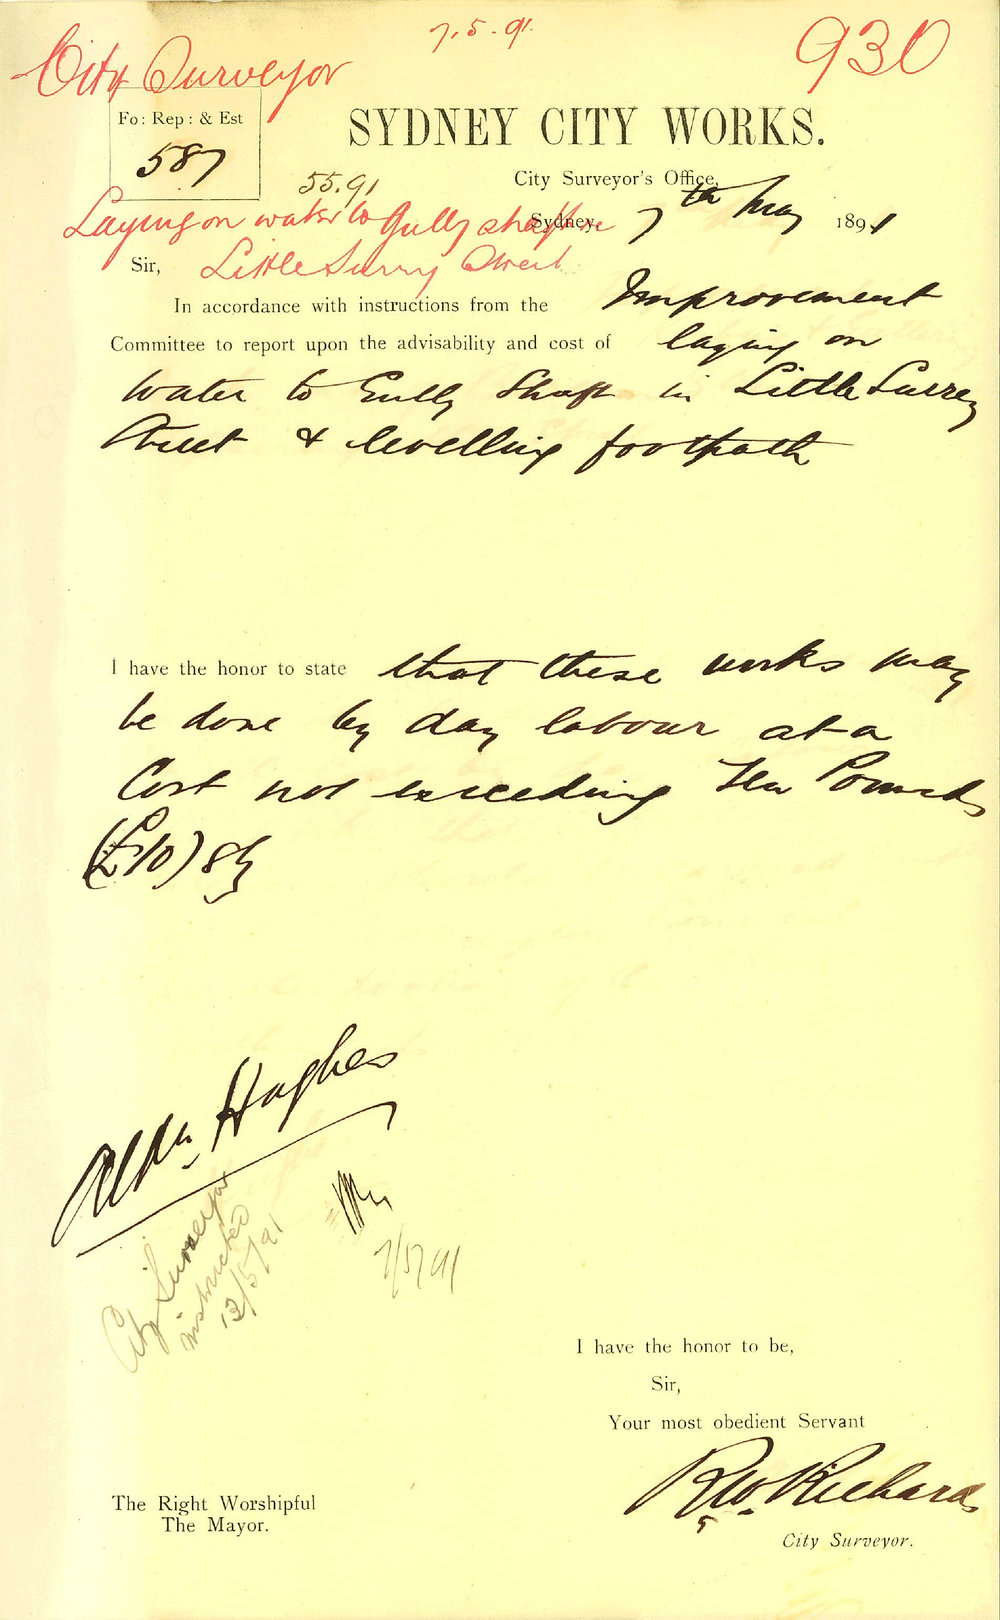 7.5.91
930
City Surveyor
Fo: Rep: & Est
587
SYDNEY CITY WORKS.
55.91
City Surveyor's Office,
Laying on water to Gully shaft in
Sydney, 7th May 1891
Little Surry Street
Sir,
In accordance with instructions from the Improvement
Committee to report upon the advisability and cost of laying on
water to Gully Shaft in Little Surrey
Street & levelling footpath
I have the honor to state that these works may
be done by day labour at a
Cost not exceeding Ten Pounds
(£10)
Aldn. Hughes
City Surveyor
instructed
13/5/91
7/5/91
I have the honor to be,
Sir,
Your most obedient Servant
R.W. Richards
City Surveyor.
The Right Worshipful
The Mayor.